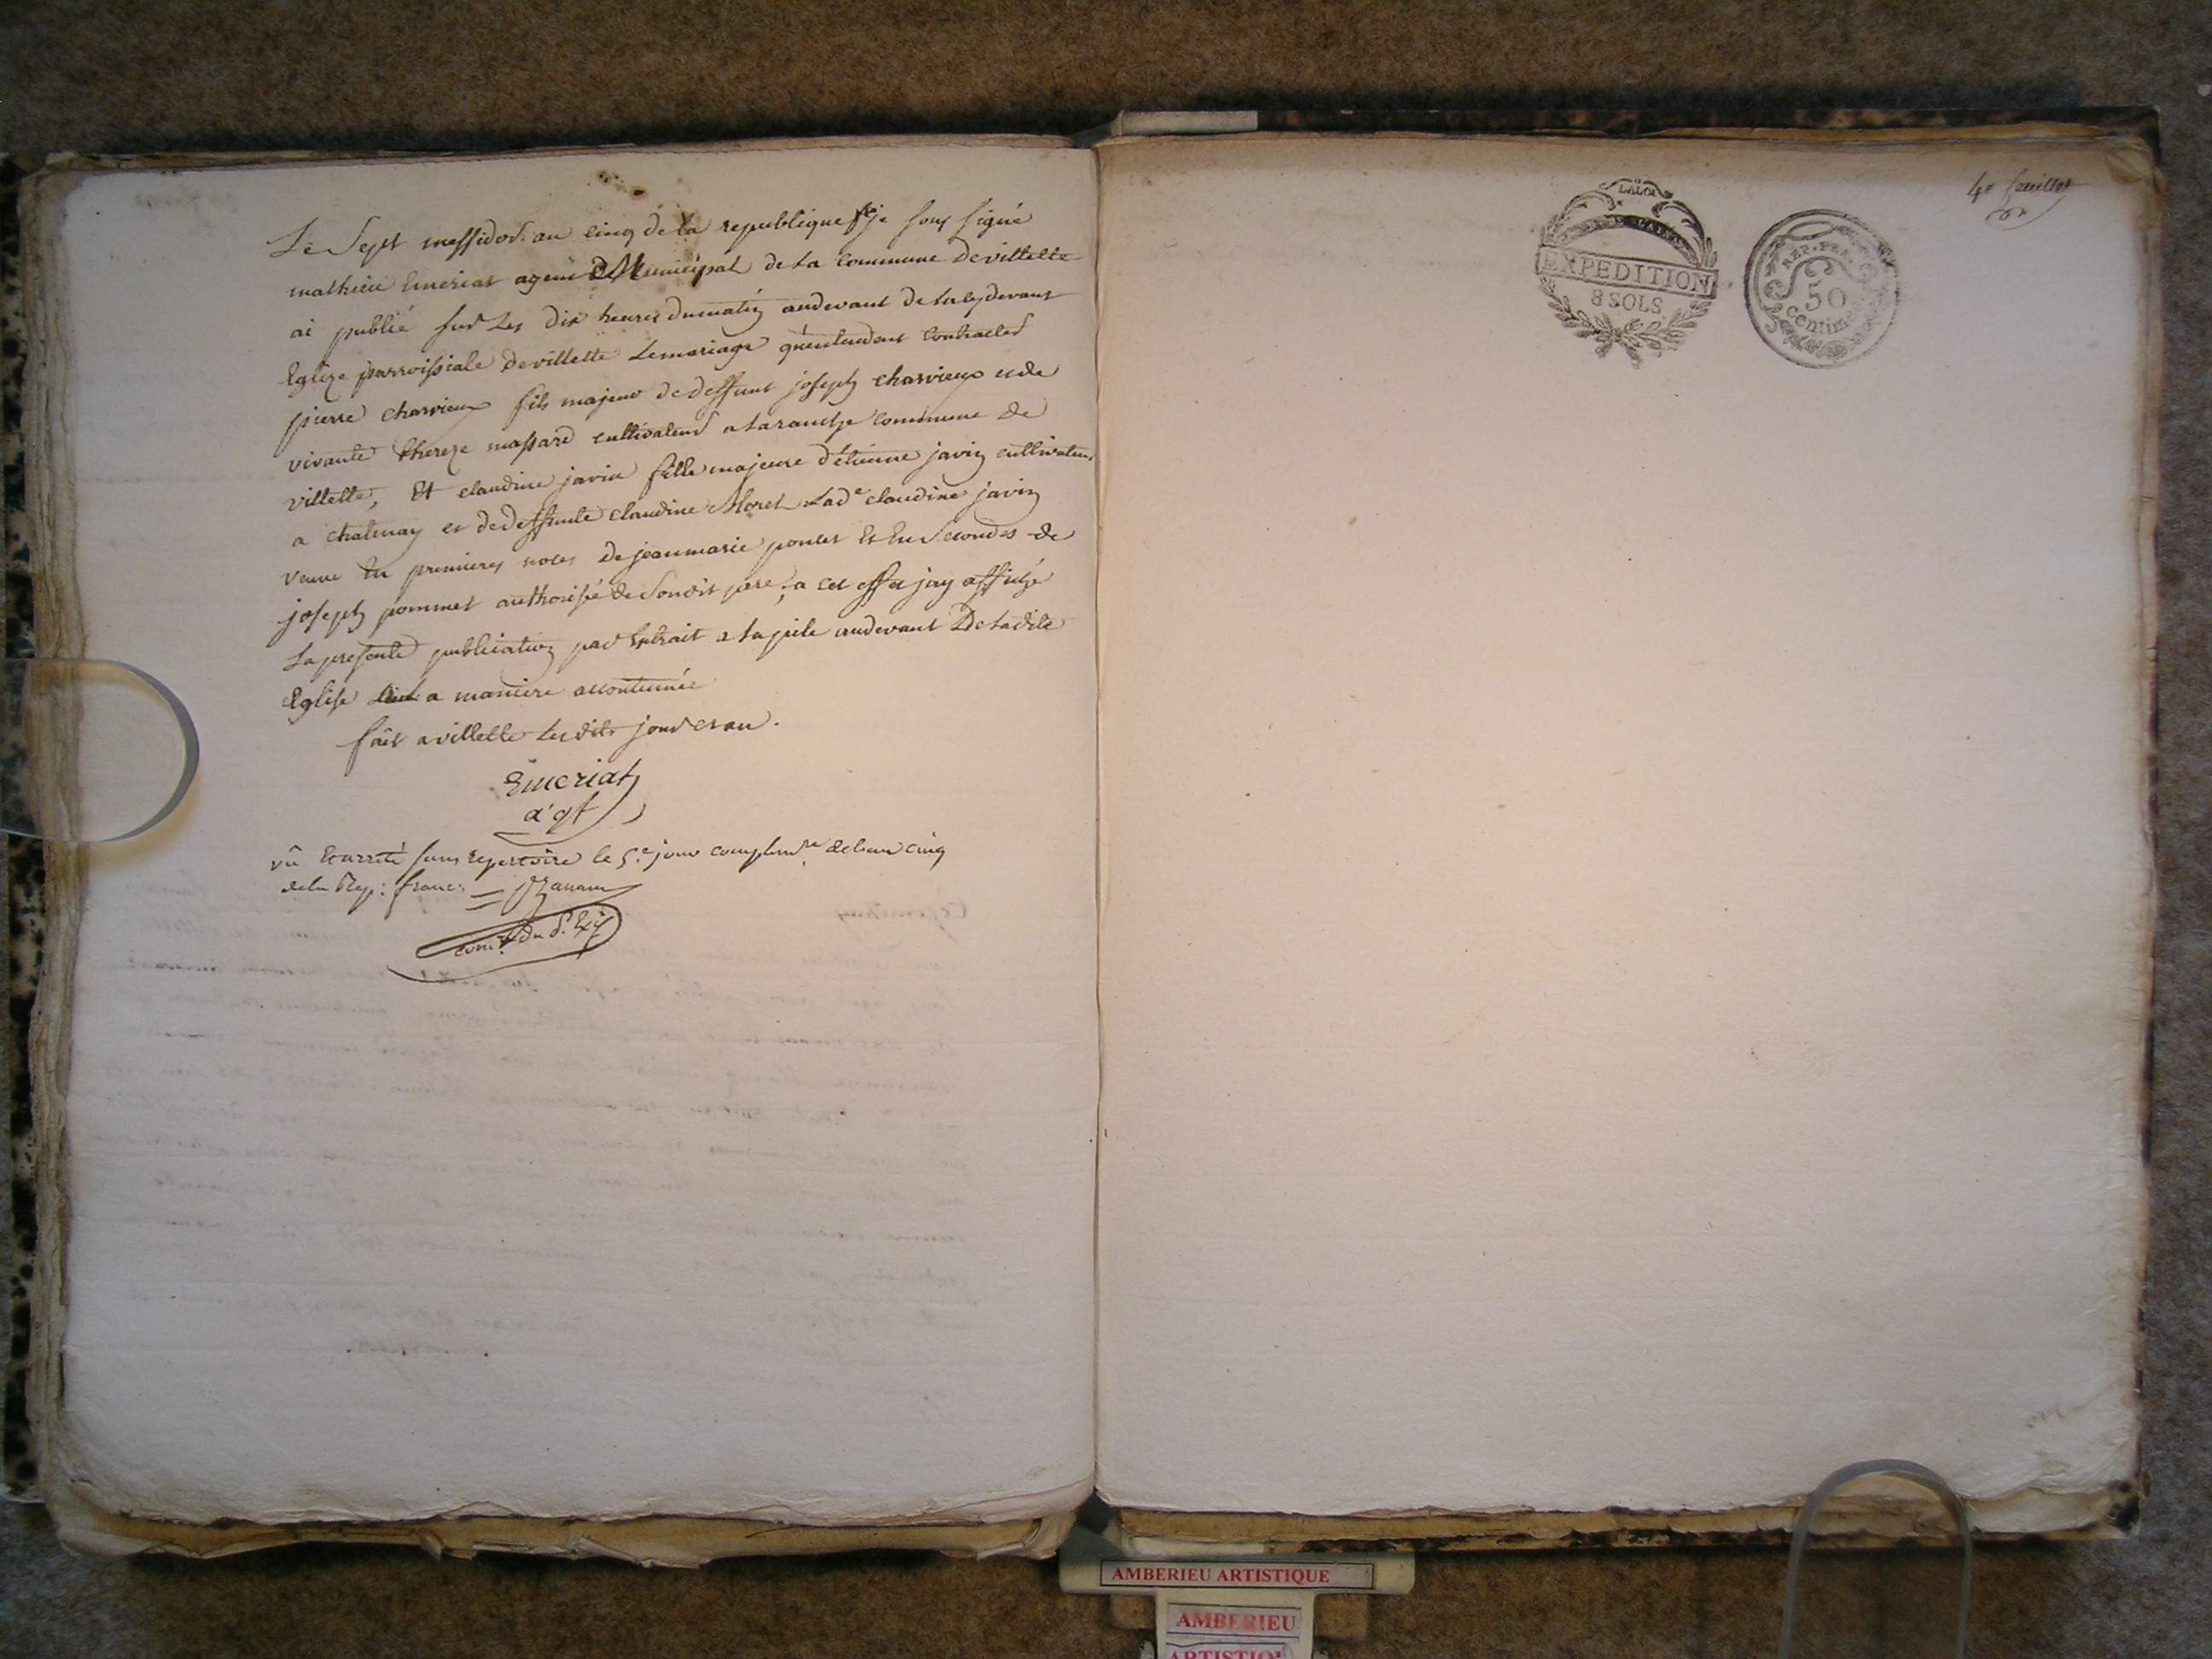 Le Sept messidor an cinq de la republique fse je sous signé
mathieu Emeriat agent Municipal de la Commune de villette
ai publié sur Les dix heures du matin audevant de la cydevant
Eglize parroissiale de villette Le mariage qu'entendent contracter
pierre charvieux fils majeur de deffunt joseph charvieux et de
vivante thereze massard cultivateur a laranche commune de
villette, Et claudine javin fille majeure d'étienne javin cultivateur
a chatenay et de deffunte claudine Moret Lade claudine javin
veuve En premieres noces de jean marie poncet Et En Secondes de
joseph pommet authorisée de Son dit pere, a cet effet jay affiché
La presente publication par Extrait a la pile audevant De ladite
Eglise a maniere accoutumée
fait a villette Les dits jour et an.
Emeriat
agt
vû et arrêté sans repertoire le 5e jour complemre de l'an cinq
de la Rep: franc:
comre du d. Ex
4e feuillet
LA LOI
EXPEDITION
8 SOLS.
REP. FRA.
50
centimes
AMBERIEU ARTISTIQUE
AMBERIEU
ARTISTIQUE